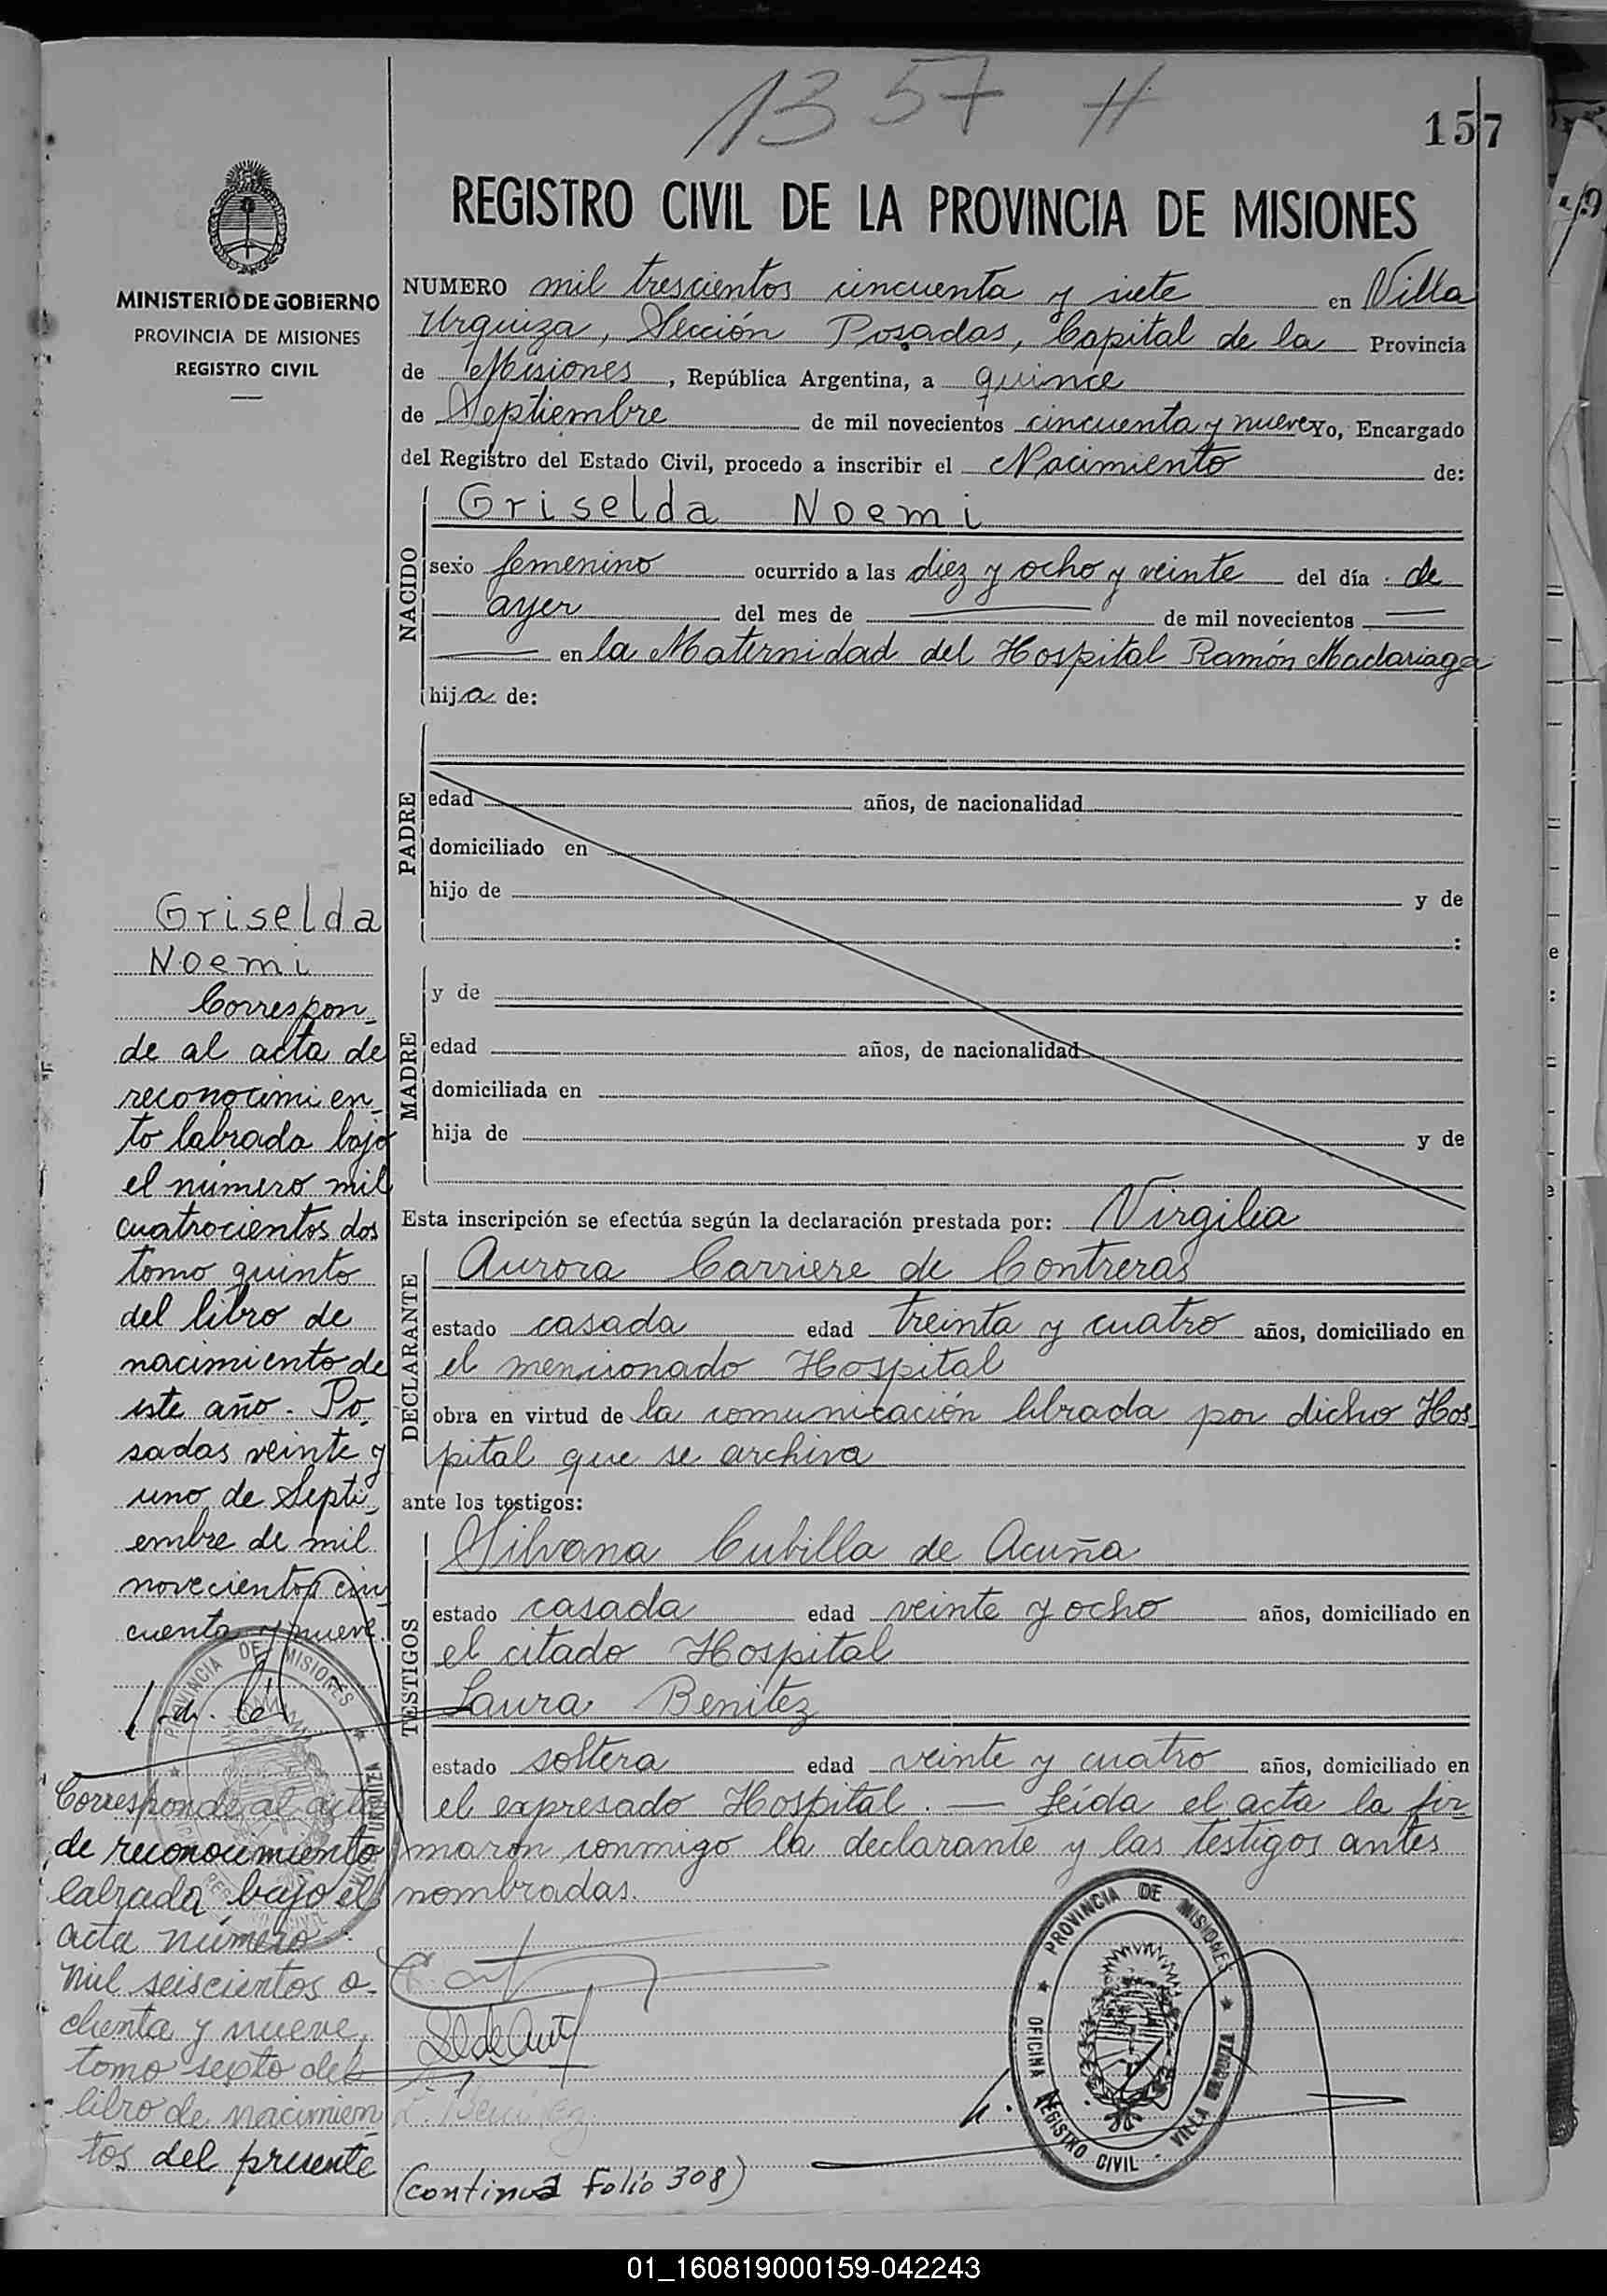 1357 H
157
REGISTRO CIVIL DE LA PROVINCIA DE MISIONES
MINISTERIO DE GOBIERNO
PROVINCIA DE MISIONES
REGISTRO CIVIL
NUMERO mil trescientos cincuenta y siete en Villa
Urquiza, Sección Posadas, Capital de la Provincia
de Misiones, República Argentina, a quince
de Septiembre de mil novecientos cincuenta y nueve Yo, Encargado
del Registro del Estado Civil, procedo a inscribir el Nacimiento de:
Griselda Noemi
NACIDO
sexo femenino ocurrido a las diez y ocho y veinte del día de
ayer del mes de — de mil novecientos —
— en la Maternidad del Hospital Ramón Madariaga
hija de:
PADRE
edad años, de nacionalidad
domiciliado en
hijo de y de
:
MADRE
y de
edad años, de nacionalidad
domiciliada en
hija de y de
Esta inscripción se efectúa según la declaración prestada por: Virgilia
Aurora Carriere de Contreras
DECLARANTE
estado casada edad treinta y cuatro años, domiciliado en
el mencionado Hospital
obra en virtud de la comunicación librada por dicho Hos-
pital que se archiva
ante los testigos:
TESTIGOS
Silvana Cubilla de Acuña
estado casada edad veinte y ocho años, domiciliado en
el citado Hospital
Laura Benitez
estado soltera edad veinte y cuatro años, domiciliado en
el expresado Hospital. — Leída el acta la fir-
maron conmigo la declarante y las testigos antes
nombradas.
L. Benitez
(continua Folio 308)
PROVINCIA DE MISIONES
OFICINA REGISTRO CIVIL - VILLA URQUIZA
Griselda
Noemi
Correspon-
de al acta de
reconocimien-
to labrada bajo
el número mil
cuatrocientos dos
tomo quinto
del libro de
nacimiento de
este año. Po-
sadas veinte y
uno de Septi-
embre de mil
novecientos cin-
cuenta y nueve.
PROVINCIA DE MISIONES
VILLA URQUIZA
Corresponde al acta
de reconocimiento
labrada bajo el
acta número
mil seiscientos o-
chenta y nueve,
tomo sexto del
libro de nacimien-
tos del presente
01_160819000159-042243